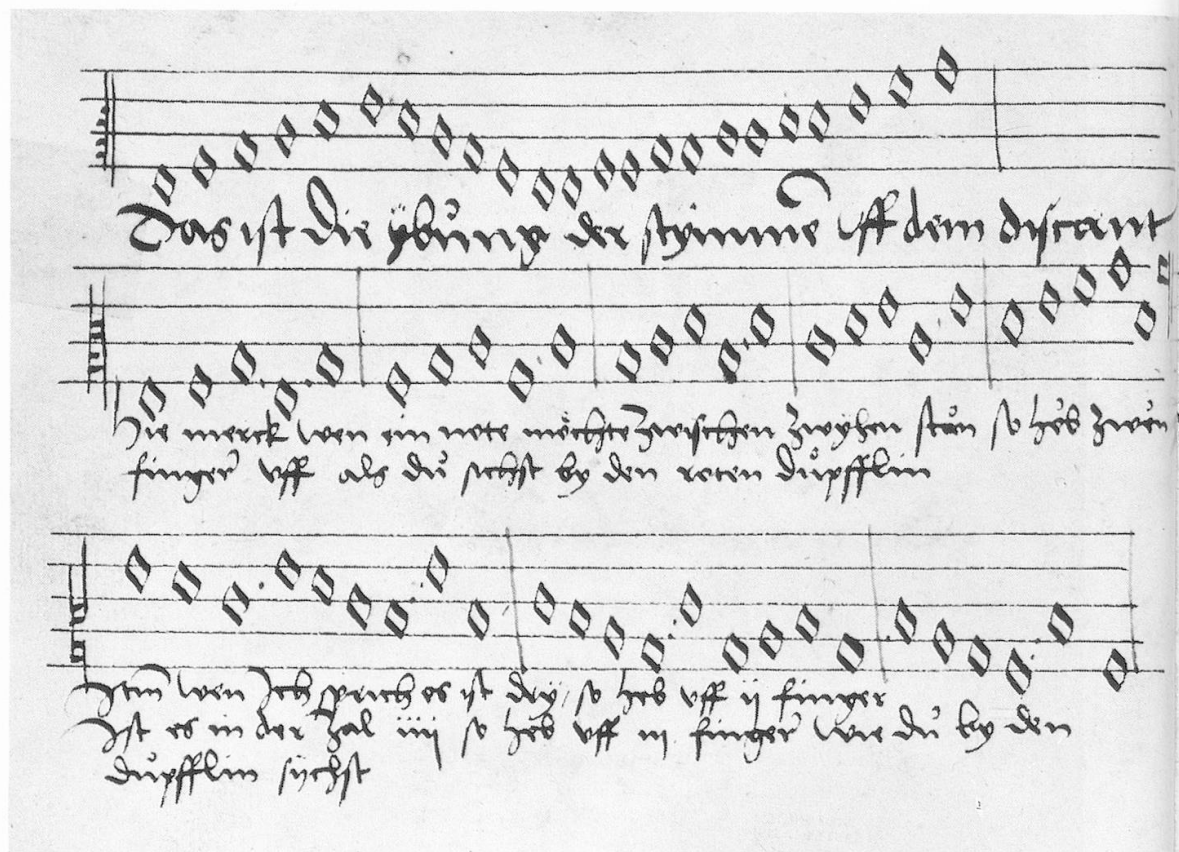 Das ist die ÿbůng der stÿmmē vff dem discant
Hie merck wen ein note mo̊chte zwischen zwyhen stůn so heb zwen
finger vff als dů sichst by den roten důpfflin
Itm̄ wen Ich sprich es ist drÿ / so heb vff ij finger
Ist es in der zal iiij so heb vff iij finger wie dů by den
důpfflin sychst